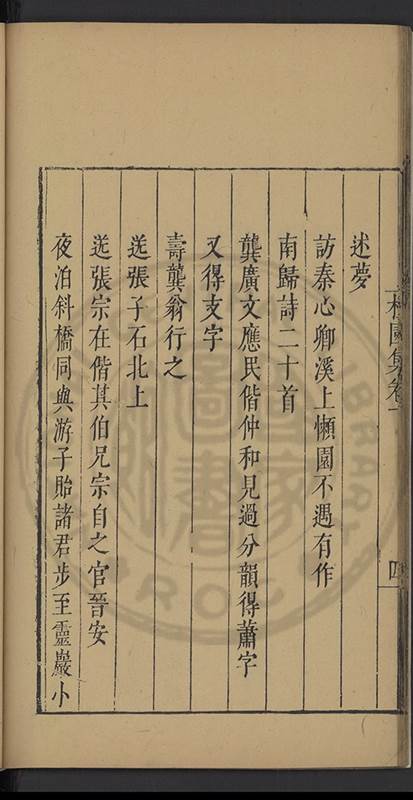 述夢
訪秦心卿溪上懶園不遇有作
南歸詩二十首
龔廣文應民偕仲和見過分韻得蕭字
又得支字
壽龔翁行之
送張子石北上
送張宗在偕其伯兄宗自之官晉安
夜泊斜橋同與游子貽諸君步至靈巖小